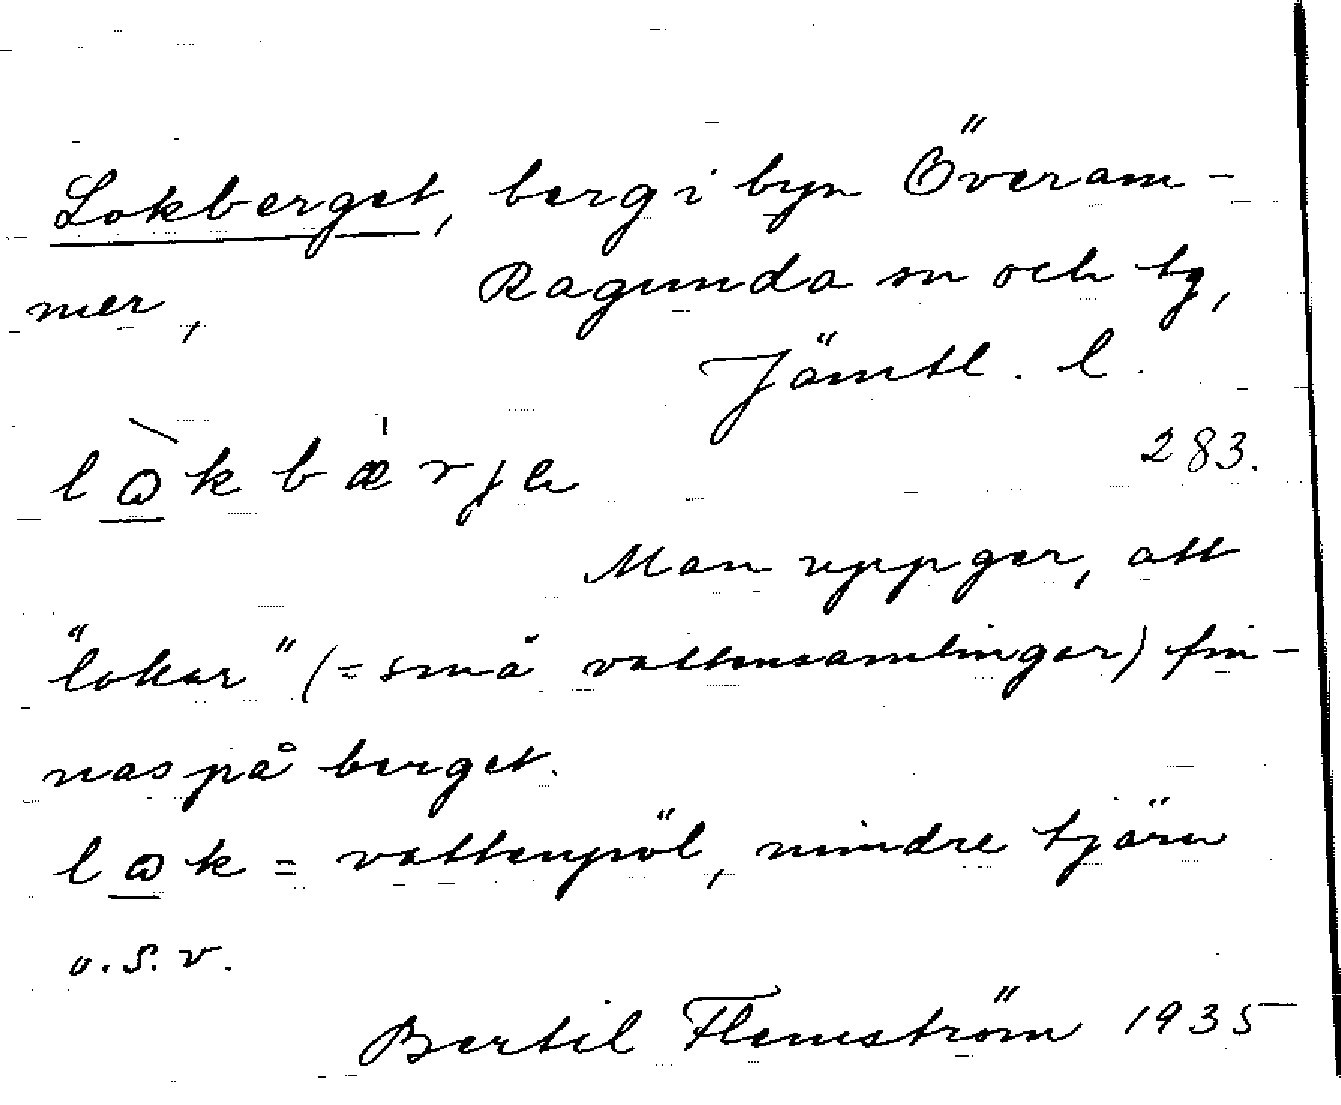 Lokberget, berg i byn Överam-
mer, Ragunda sn och tg,
Jämtl. l.
283.
lὼkbæ̍rjα
Man uppger, att
"lokar" (= små vattensamlingar) fin-
nas på berget.
lωk = vattenpöl, mindre tjärn
o.s.v.
Bertil Flemström 1935